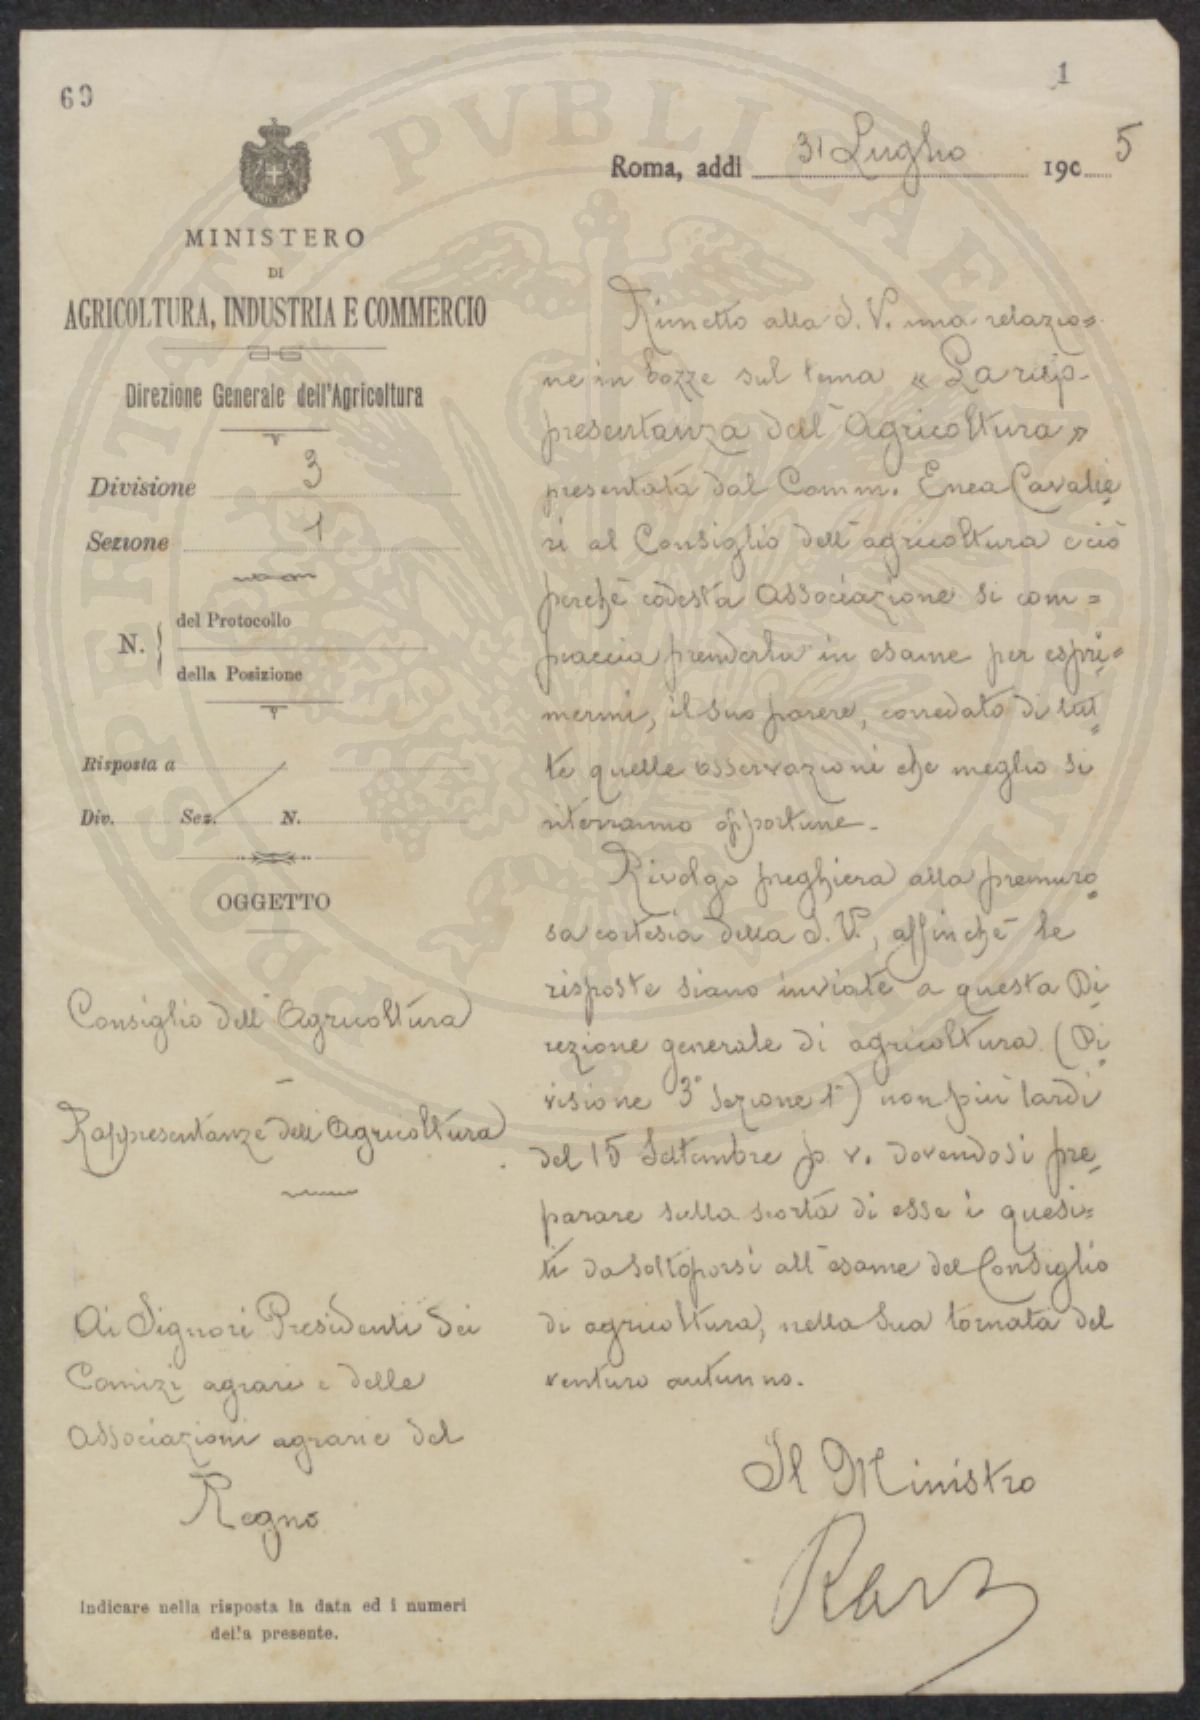 69
1
MINISTERO
DI
AGRICOLTURA, INDUSTRIA E COMMERCIO
Direzione Generale dell'Agricoltura
Divisione 3
Sezione 1
N. del Protocollo
della Posizione
Risposta a
Div. Sez. N.
OGGETTO
Consiglio dell'Agricoltura
Rappresentanze dell'Agricoltura
Ai Signori Presidenti dei
Comizi agrari e delle
Associazioni agrarie del
Regno
Indicare nella risposta la data ed i numeri
della presente.
Roma, addì 31 Luglio 1905
Rimetto alla S. V. una relazio=
ne in bozze sul tema « La rap-
presentanza dell'Agricoltura »
presentata dal Comm. Enea Cavalie=
ri al Consiglio dell'agricoltura e ciò
perchè codesta Associazione si com=
piaccia prenderla in esame per espri=
mermi, il suo parere, corredato di tut=
te quelle osservazioni che meglio si
riterranno opportune.
Rivolgo preghiera alla premuro=
sa cortesia della S. V., affinchè le
risposte siano inviate a questa Di=
rezione generale di agricoltura (Di=
visione 3ª Sezione 1ª) non più tardi
del 15 Settembre p. v. dovendosi pre=
parare sulla scorta di esse i quesi=
ti da sottoporsi all'esame del Consiglio
di agricoltura, nella sua tornata del
venturo autunno.
Il Ministro
Rava
PROSPERITATI PVBLICAE